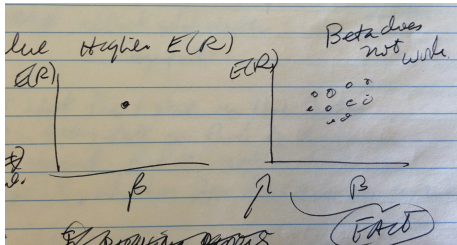 lue Higher E(R)
Beta does
not work.
E(R)
E(R)
β
β
FACT